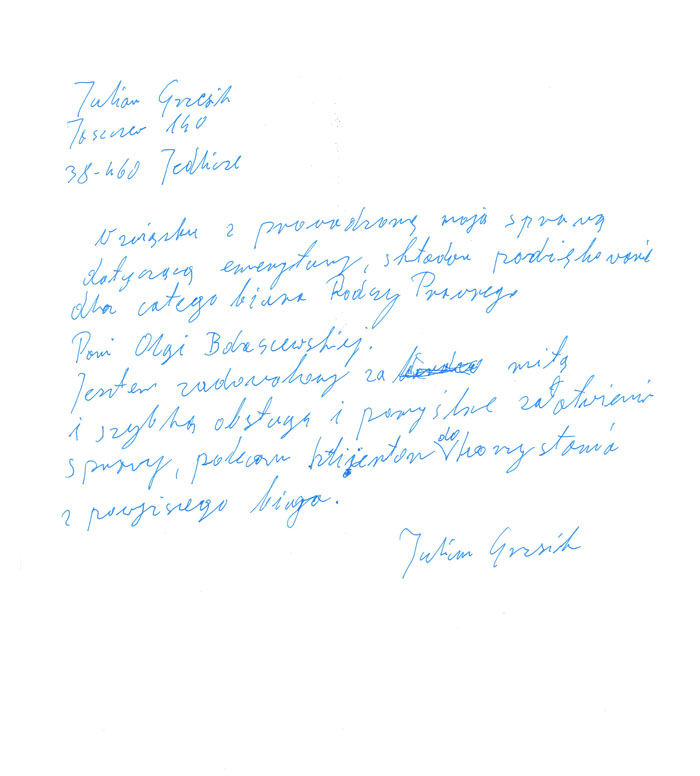 Julian Grzesik
Jaszczew 140
38-460 Jedlicze
W związku z prowadzoną moją sprawą
dotyczącą emerytury, składam podziękowanie
dla całego biura Radcy Prawnego
Pani Olgi
Jestem zadowolony za miłą
i szybką obsługę i pomyślne załatwienie
sprawy, polecam klijentom do korzystania
z powyższego biura.
Julian Grzesik